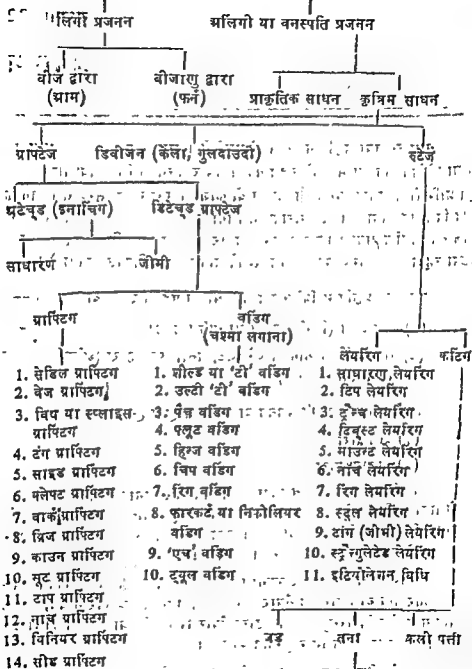 लिंगी प्रजनन
अलिंगी या वनस्पति प्रजनन
बीज द्वारा
(आम)
बीजाणु द्वारा
(फर्न)
प्राकृतिक साधन
कृत्रिम साधन
ग्राफ्टेज
डिवीजन (केला, गुलदाउदी)
स्टेज
अटेच्ड (इनार्चिंग)
डिटेच्ड ग्राफ्टेज
साधारण
जीभी
ग्राफ्टिंग
बडिंग
(चश्मा लगाना)
लेयरिंग
कटिंग
1. सेडिल ग्राफ्टिंग
2. वेज ग्राफ्टिंग
3. विप या स्प्लाइस-
ग्राफ्टिंग
4. टंग ग्राफ्टिंग
5. साइड ग्राफ्टिंग
6. क्लेफ्ट ग्राफ्टिंग
7. बार्क ग्राफ्टिंग
8. ब्रिज ग्राफ्टिंग
9. क्राउन ग्राफ्टिंग
10. रूट ग्राफ्टिंग
11. टाप ग्राफ्टिंग
12. नाच ग्राफ्टिंग
13. विनियर ग्राफ्टिंग
14. सीड ग्राफ्टिंग
1. शील्ड या 'टी' बडिंग
2. उल्टी 'टी' बडिंग
3. पैच बडिंग
4. फ्लूट बडिंग
5. हिन्ज बडिंग
6. चिप बडिंग
7. रिंग बडिंग
8. फारकर्ट या निकोलियर
बडिंग
9. 'एच' बडिंग
10. ट्यूल बडिंग
1. साधारण लेयरिंग
2. टिप लेयरिंग
3. ट्रेन्च लेयरिंग
4. टिवस्ट लेयरिंग
5. माउन्ट लेयरिंग
6. नॉच लेयरिंग
7. रिंग लेयरिंग
8. स्टूल लेयरिंग
9. टांग (जीभी) लेयरिंग
10. स्ट्रेन्गुलेटेड लेयरिंग
11. इटियोलेशन विधि
जड़
तना
कली पत्ती